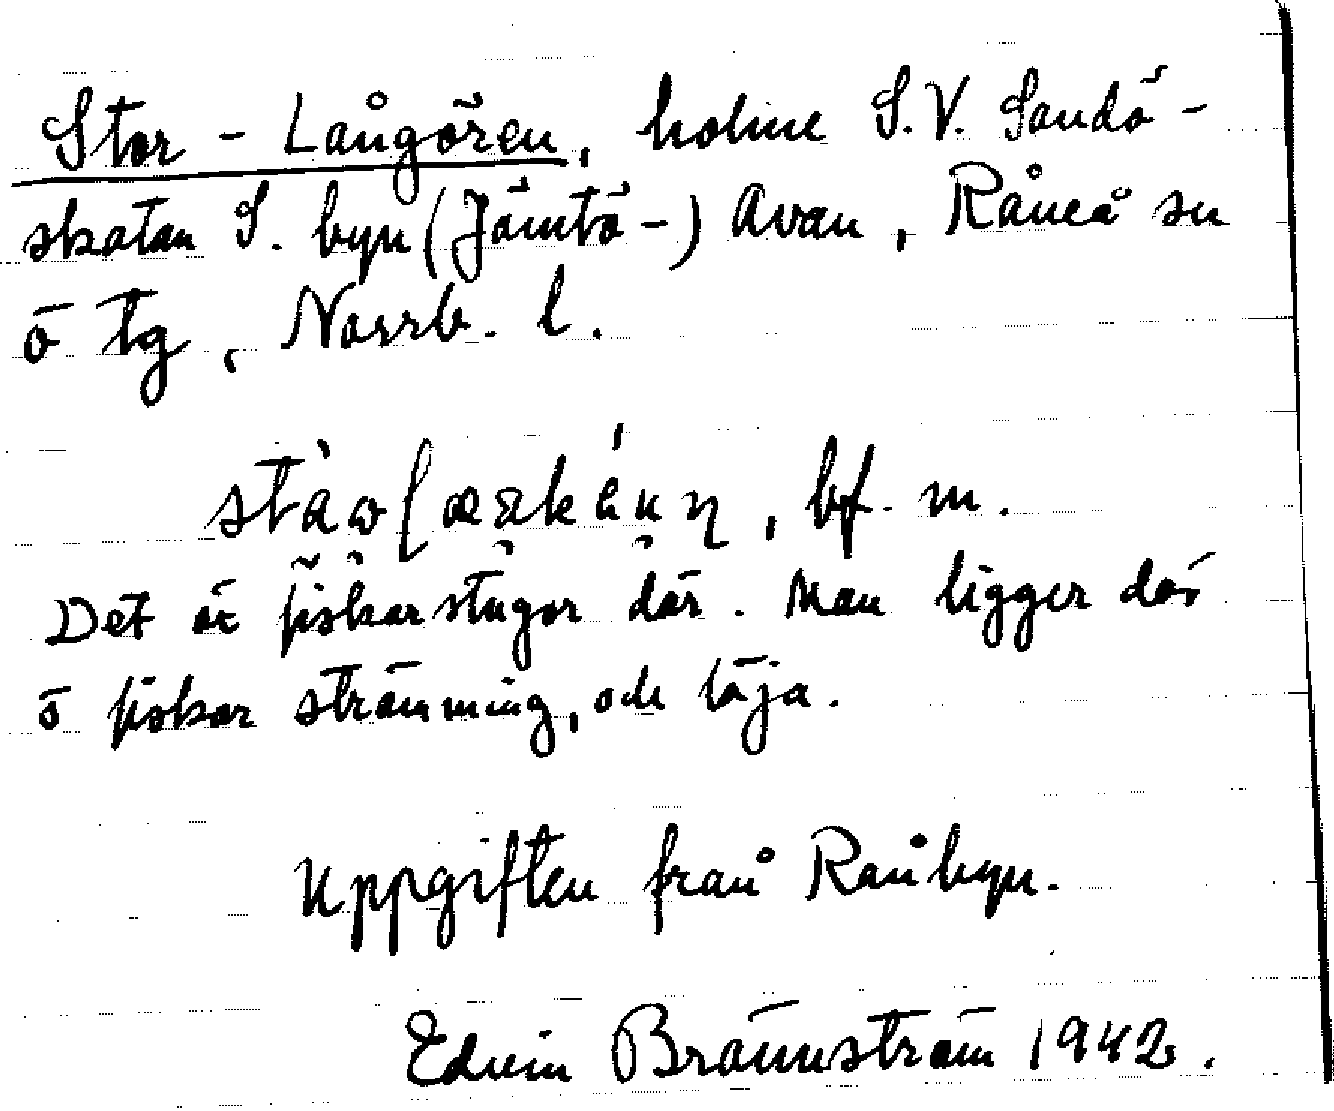 Stor-Långören, holme S.V. Sandö-
skatan S. byn (Jämtö-) Avan, Råneå sn
ö tg, Norrb. l.
bf. m.
Det är fiskarstugor där. Man ligger där
ö fiskar strömming, och löja.
Uppgiften från Rånbyn.
Edvin Brännström 1942.